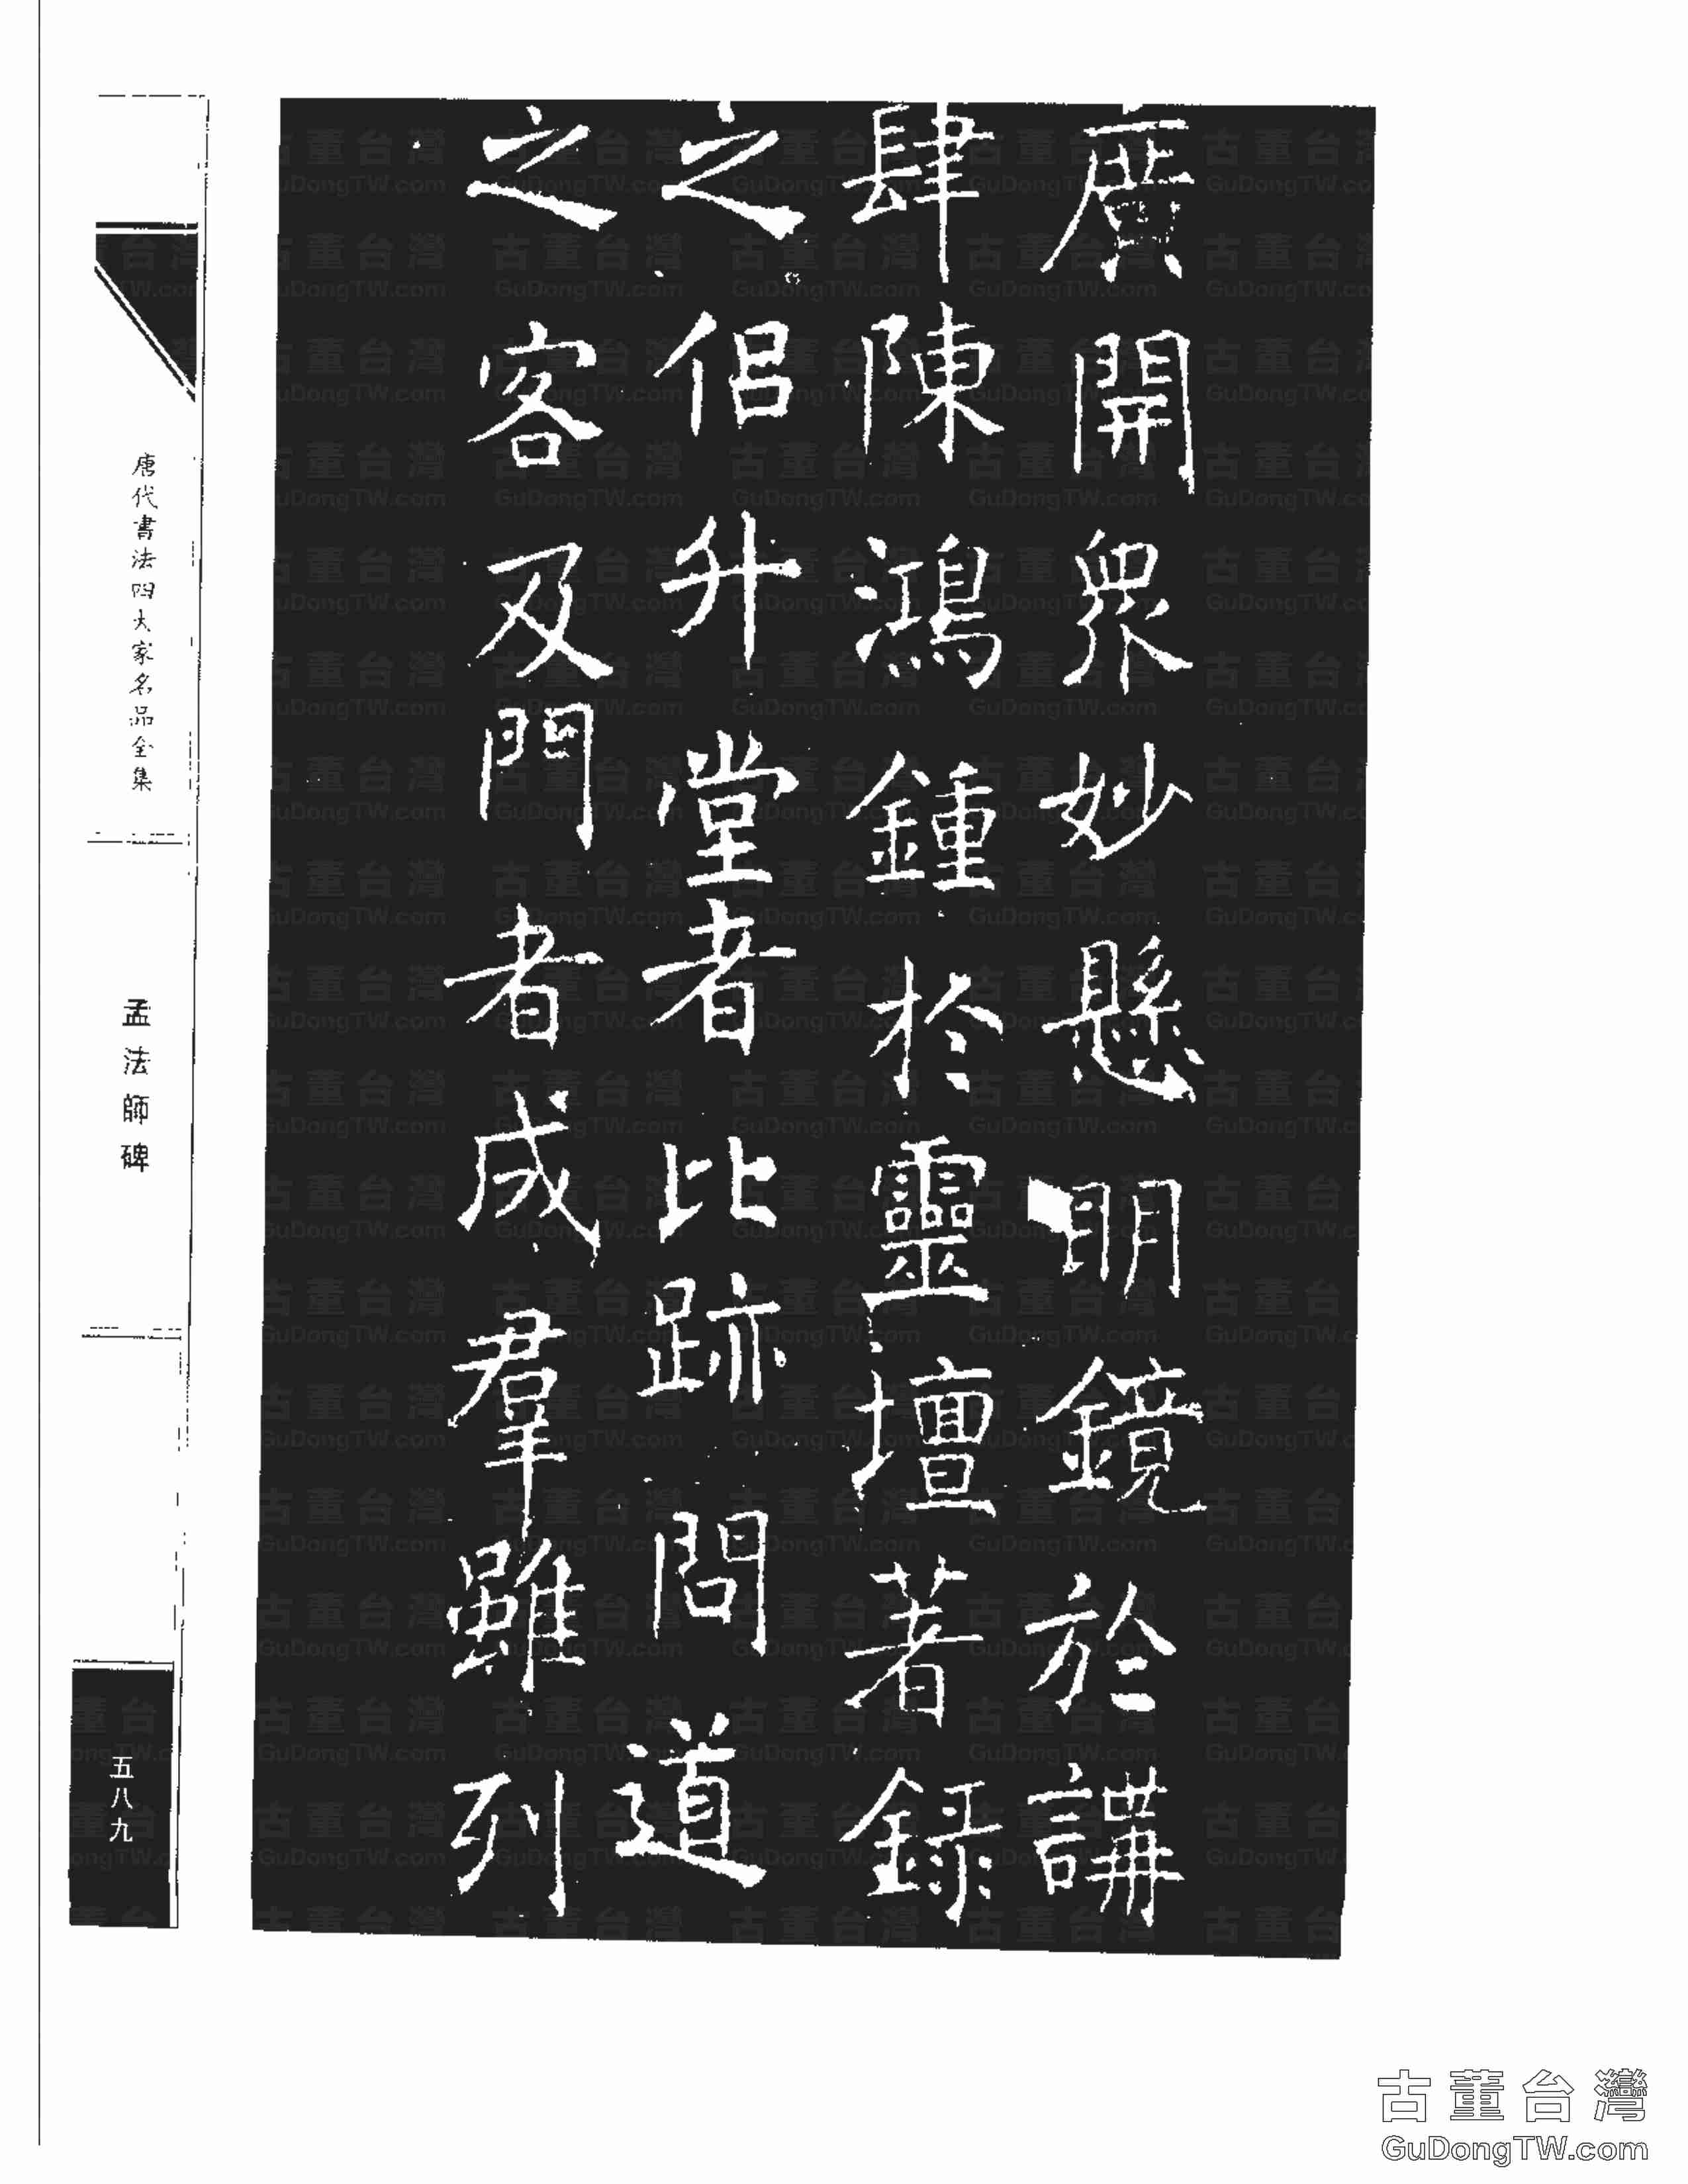 廣開眾妙懸明鏡於講
肆陳鴻鍾於靈壇著錄
之侶升堂者比跡問道
之客及門者成羣雖列
唐代書法四大家名品全集
孟法師碑
五八九
古董台灣
GuDongTW.com